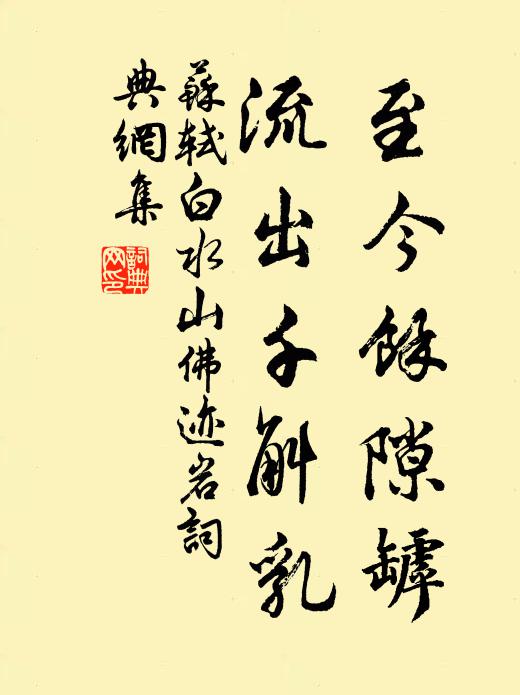 至今餘隙罅
流出千斛乳
蘇軾白水山佛迹岩詞
典網集
詞典網印